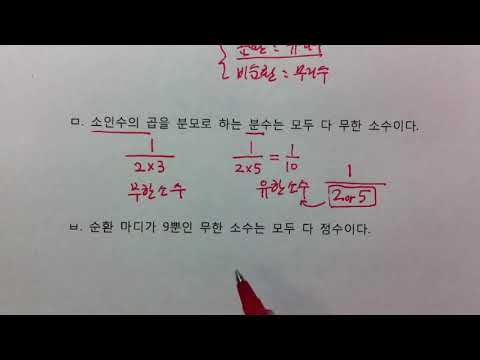 순환 = 유리수
비순환 = 무리수
ㅁ. 소인수의 곱을 분모로 하는 분수는 모두 다 무한 소수이다.
1/2×3 1/2×5 = 1/10 1/2 or 5
무한소수 유한소수
ㅂ. 순환 마디가 9뿐인 무한 소수는 모두 다 정수이다.